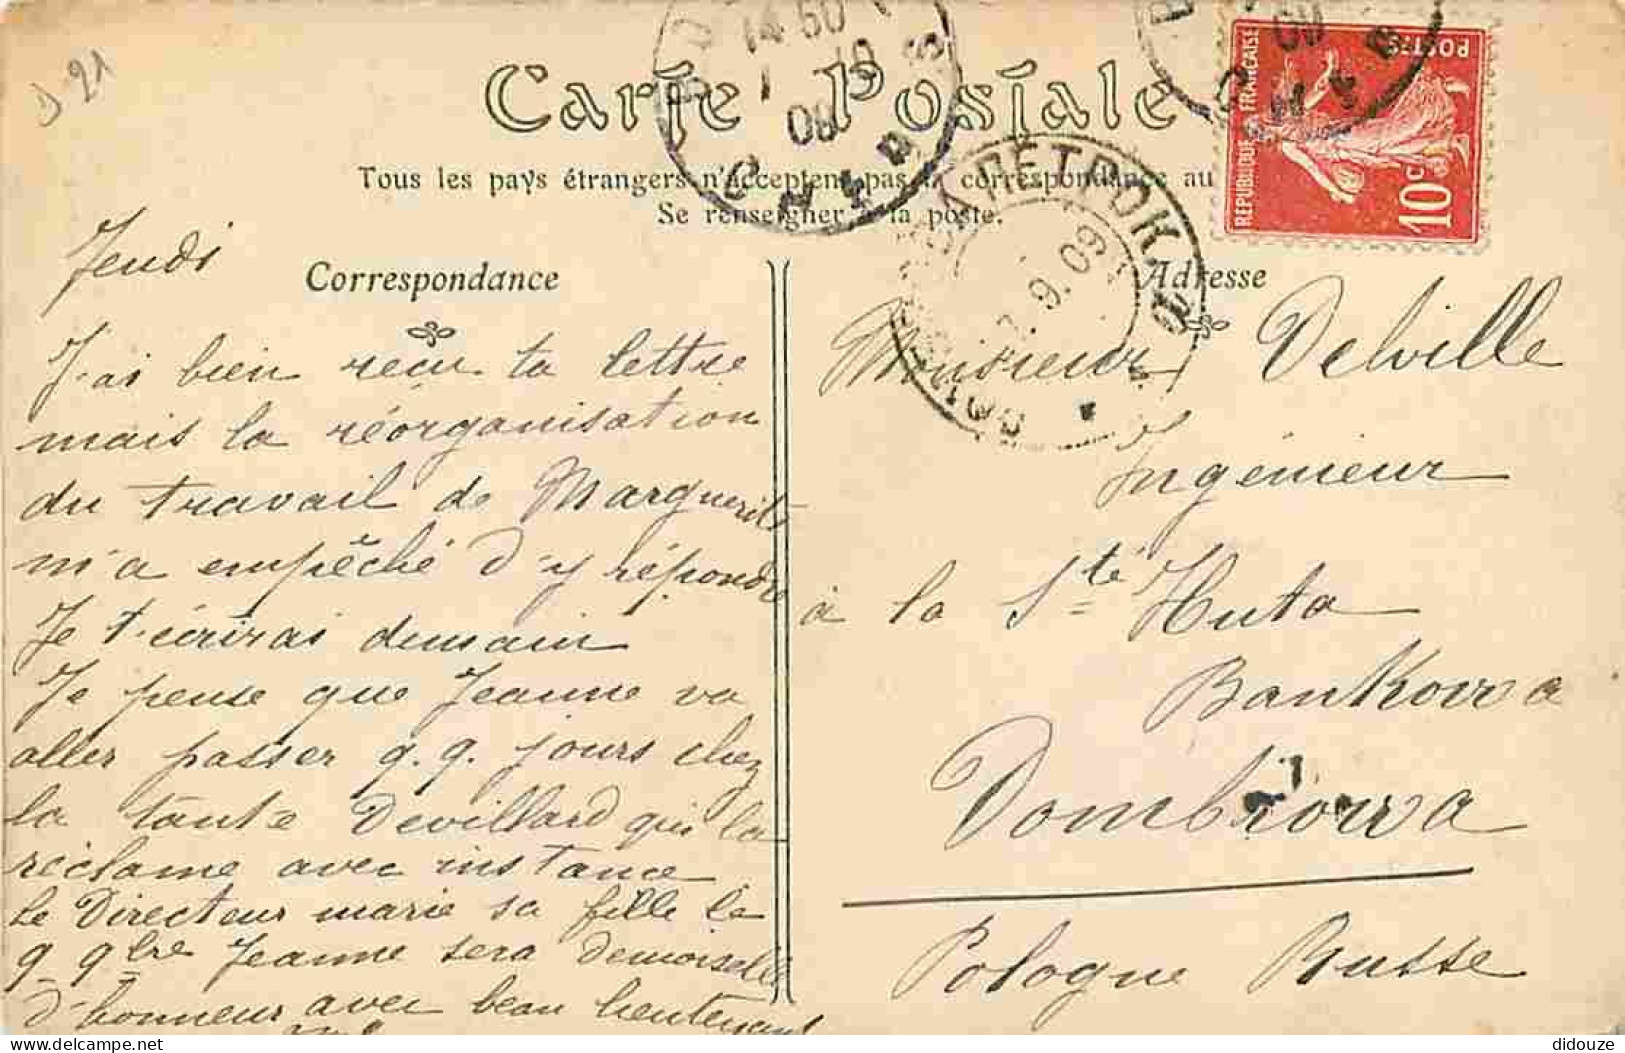 J 21
Carte Postale
Tous les pays étrangers n'acceptent pas la correspondance au
Se renseigner à la poste.
RÉPUBLIQUE FRANÇAISE
POSTES
10c
14 50
09
9.09
Correspondance
Adresse
Jeudi
J'ai bien reçu ta lettre
mais la réorganisation
du travail de Marguerite
m'a empêché d'y répondre
Je t'écrirai demain
Je pense que Jeanne va
aller passer q.q. jours chez
la tante Devillard qui la
réclame avec instance
Le Directeur marie sa fille le
9 9bre Jeanne sera demoiselle
d'honneur avec beau lieutenant
Monsieur Delville
Ingénieur
à la Sté Huta
Bankowa
Dombrowa
Pologne Russe
didouze @ delcampe.net